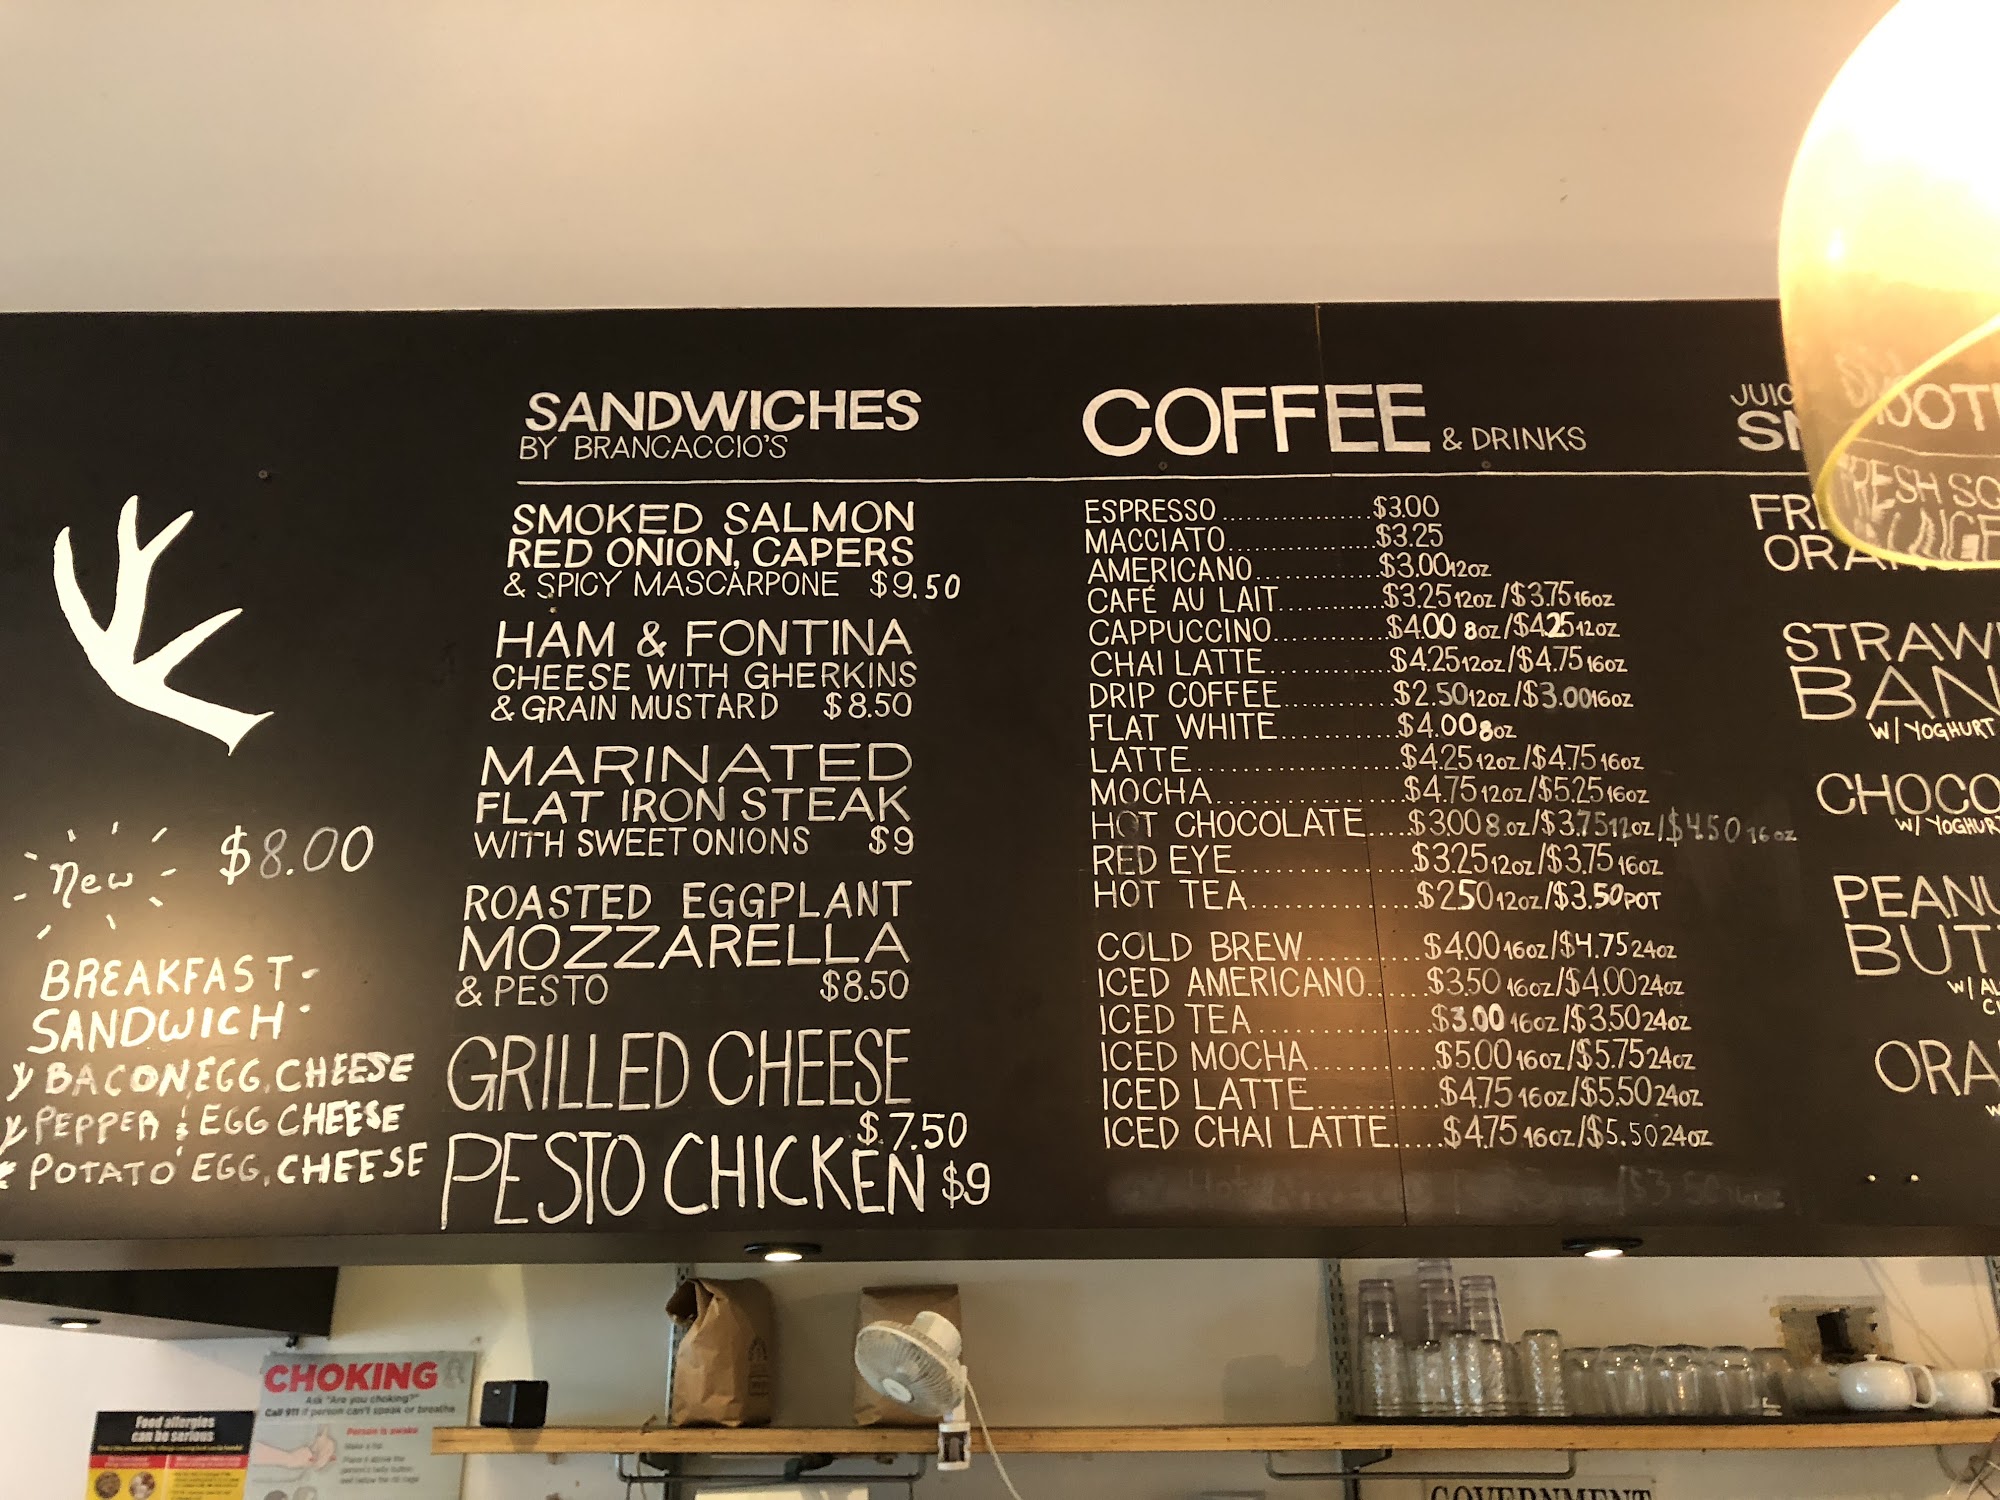 New $8.00
BREAKFAST-
SANDWICH
BACON, EGG, CHEESE
PEPPER & EGG CHEESE
POTATO EGG, CHEESE
SANDWICHES
BY BRANCACCIO'S
SMOKED SALMON
RED ONION, CAPERS
& SPICY MASCARPONE $9.50
HAM & FONTINA
CHEESE WITH GHERKINS
& GRAIN MUSTARD $8.50
MARINATED
FLAT IRON STEAK
WITH SWEET ONIONS $9
ROASTED EGGPLANT
MOZZARELLA
& PESTO $8.50
GRILLED CHEESE
$7.50
PESTO CHICKEN $9
COFFEE & DRINKS
ESPRESSO..................$3.00
MACCIATO..................$3.25
AMERICANO...............$3.00 12oz
CAFÉ AU LAIT.............$3.25 12oz/$3.75 16oz
CAPPUCCINO..............$4.00 8oz/$4.25 12oz
CHAI LATTE...............$4.25 12oz/$4.75 16oz
DRIP COFFEE..............$2.50 12oz/$3.00 16oz
FLAT WHITE..............$4.00 8oz
LATTE.........................$4.25 12oz/$4.75 16oz
MOCHA.......................$4.75 12oz/$5.25 16oz
HOT CHOCOLATE.....$3.00 8oz/$3.75 12oz/$4.50 16oz
RED EYE.....................$3.25 12oz/$3.75 16oz
HOT TEA....................$2.50 12oz/$3.50 POT
COLD BREW..............$4.00 16oz/$4.75 24oz
ICED AMERICANO......$3.50 16oz/$4.00 24oz
ICED TEA....................$3.00 16oz/$3.50 24oz
ICED MOCHA..............$5.00 16oz/$5.75 24oz
ICED LATTE................$4.75 16oz/$5.50 24oz
ICED CHAI LATTE.....$4.75 16oz/$5.50 24oz
W/ YOGHURT
W/ YOGHURT
CHOKING
Ask "Are you choking?"
Call 911 if person can't speak or breathe
Person is awake
Food allergies
can be serious
GOVERNMENT